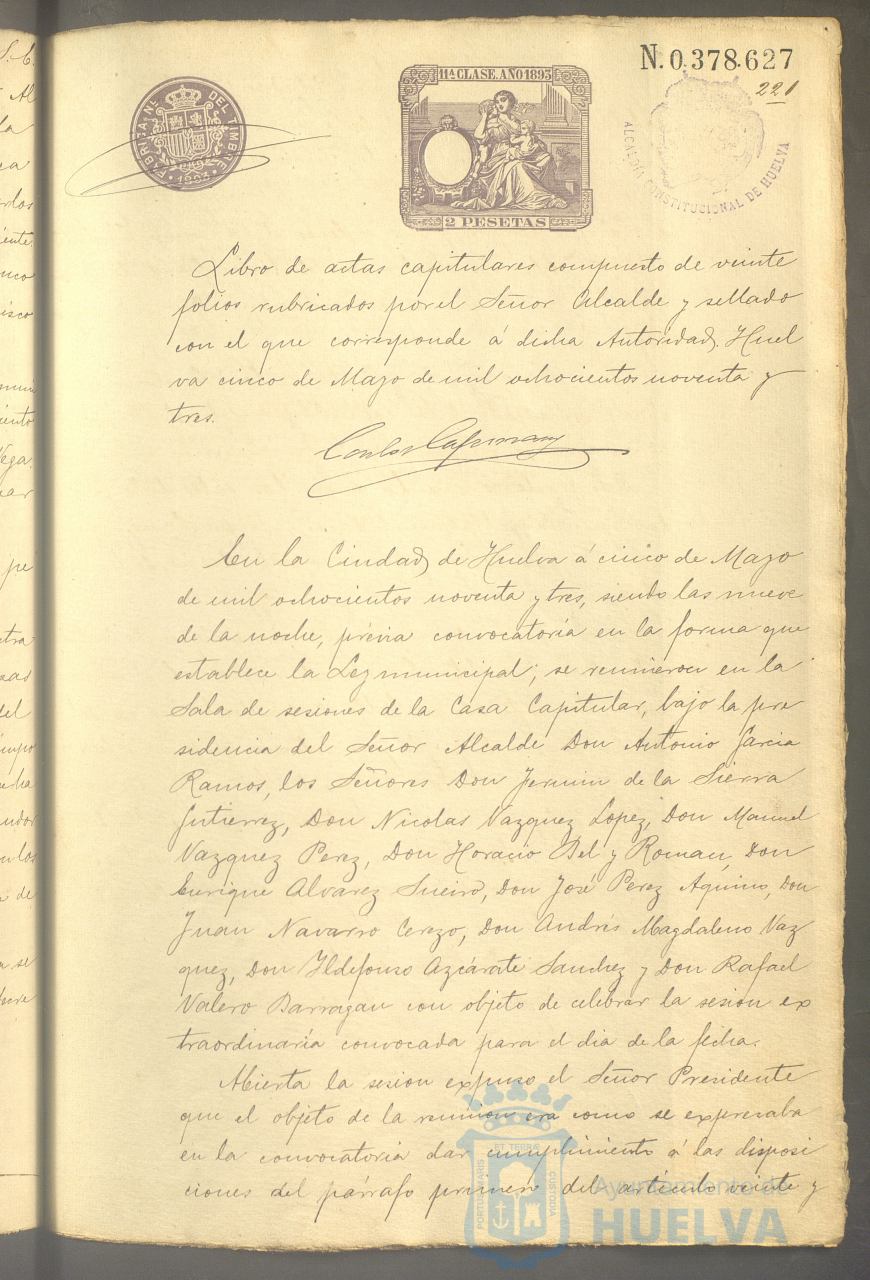 N. 0.378.627
221
11ª CLASE. AÑO 1893
FABRICA NL. DEL TIMBRE
1893
2 PESETAS
ALCALDIA CONSTITUCIONAL DE HUELVA
Libro de actas capitulares compuesto de veinte
folios rubricados por el Señor Alcalde y sellado
con el que corresponde á dicha Autoridad. Huel
va cinco de Mayo de mil ochocientos noventa y
tres.
En la Ciudad de Huelva á cinco de Mayo
de mil ochocientos noventa y tres, siendo las nueve
de la noche, prévia convocatoria en la forma que
establece la Ley municipal; se reunieron en la
Sala de sesiones de la Casa Capitular, bajo la pre
sidencia del Señor Alcalde Don Antonio Garcia
Ramos, los Señores Don Fermin de la Sierra
Gutierrez, Don Nicolas Vazquez Lopez, Don Manuel
Vazquez Perez, Don Horacio Bel y Roman, Don
Enrique Alvarez Sueiro, Don José Perez Aquino, Don
Juan Navarro Cerezo, Don Andrés Magdaleno Vaz
quez, Don Ildefonso Azcárate Sanchez y Don Rafael
Valero Barragan con objeto de celebrar la sesion ex
traordinaria convocada para el dia de la fecha.
Abierta la sesion expuso el Señor Presidente
que el objeto de la reunion era como se expresaba
en la convocatoria dar cumplimiento á las disposi
ciones del párrafo primero del artículo veinte y
PORTUS MARIS ET TERRÆ CUSTODIA
Ayuntamiento de
HUELVA